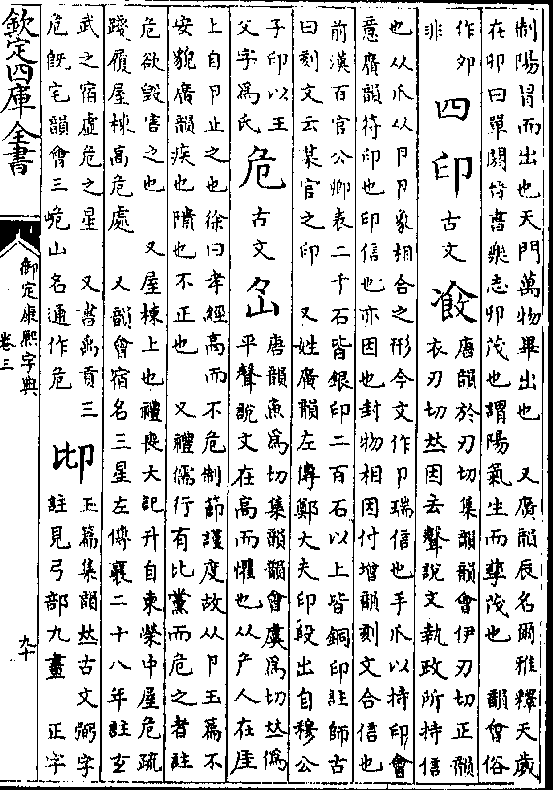 制陽冒而出也天門萬物畢出也　又廣韻辰名爾雅釋天歲
在卯曰單閼晉書樂志卯茂也謂陽氣生而孳茂也　韻會俗
作夘
非
四　印　古文
唐韻於刃切集韻韻會伊刃切正韻
衣刃切𠀤因去聲說文執政所持信
也从爪从卪卪象相合之形今文作卩瑞信也手爪以持印會
意廣韻符印也印信也亦因也封物相因付增韻刻文合信也
前漢百官公卿表二千石皆銀印二百石以上皆銅印註師古
曰刻文云某官之印　又姓廣韻左傳鄭大夫印段出自穆公
子印以王
父字爲氏
危　古文
唐韻魚爲切集韻韻會虞爲切𠀤僞
平聲說文在高而懼也从厃人在厓
上自卪止之也徐曰孝經高而不危制節謹度故从卪玉篇不
安貌廣韻疾也隤也不正也　又禮儒行有比黨而危之者註
危欲毀害之也　又屋棟上也禮喪大記升自東榮中屋危疏
踐履屋棟高危處　又韻會宿名三星左傳襄二十八年註玄
武之宿虛危之星　又書禹貢三
危旣宅韻會三峗山名通作危
玉篇集韻𠀤古文弼字
註見弓部九畫　正字
欽定四庫全書
御定康熙字典
卷三
九十